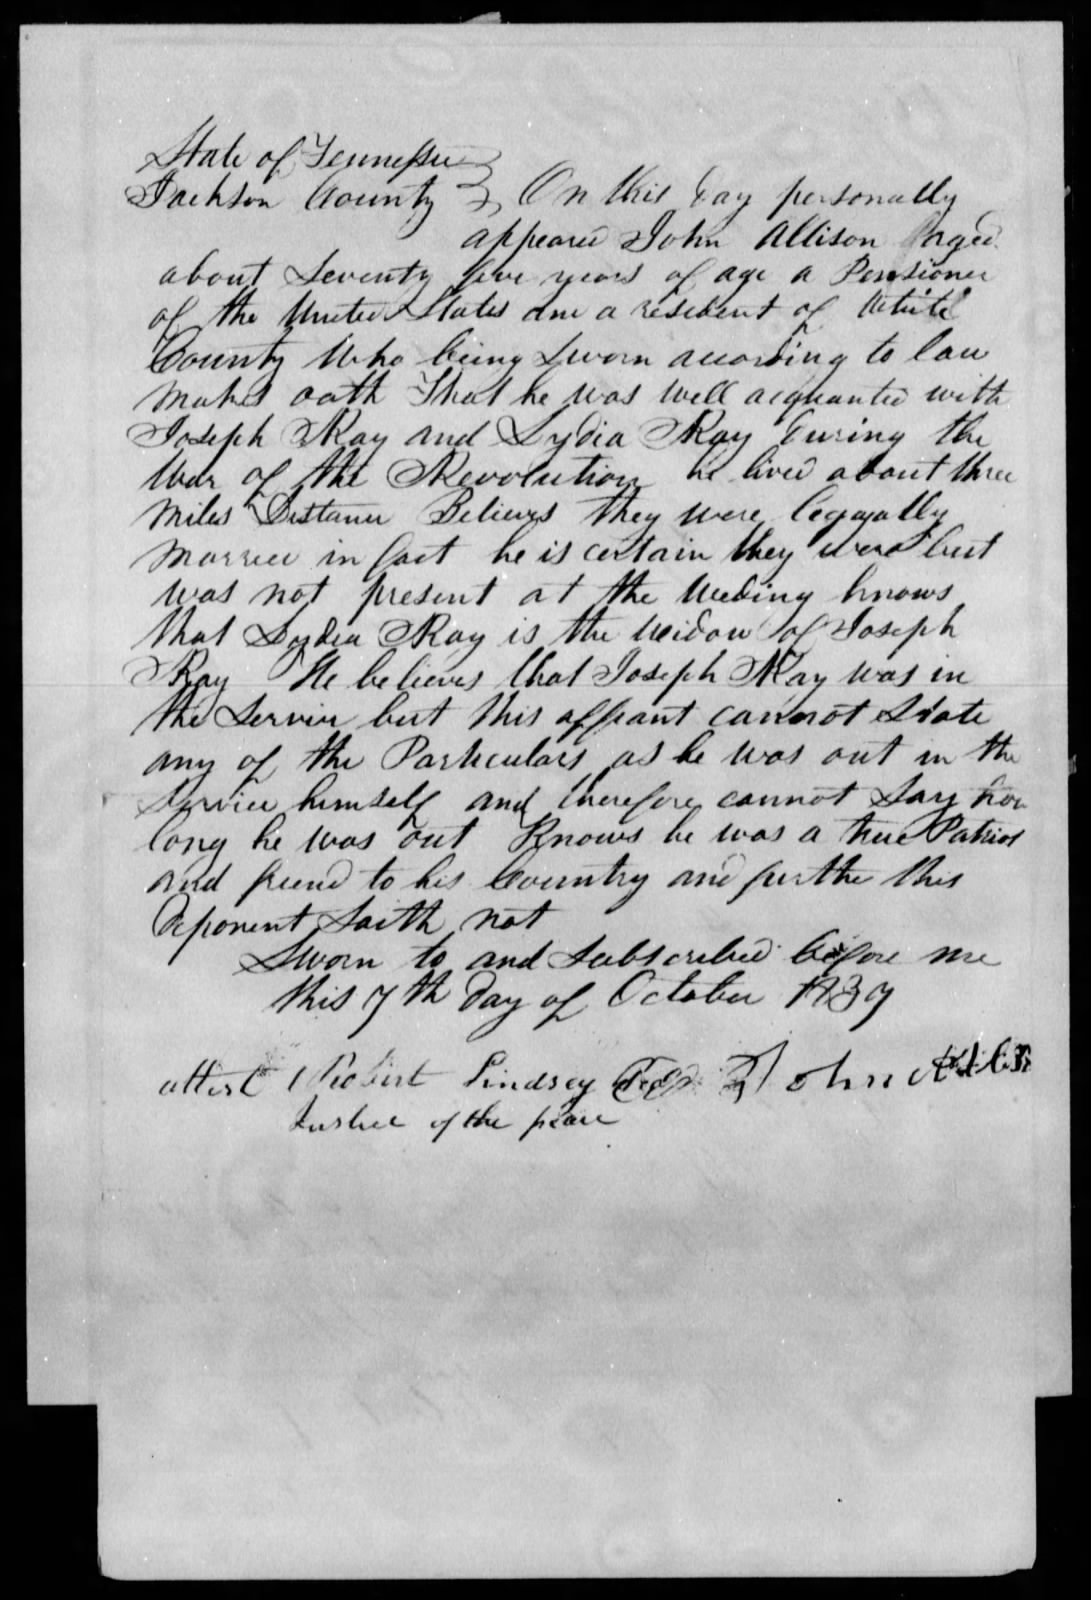 State of Tennessee }
Jackson County } On this Day personally
appeared John Allison aged
about Seventy five years of age a Pensioner
of the United States and a resident of White
County Who being Sworn according to law
makes oath That he was well acquanted with
Joseph Ray and Lydia Ray During the
War of the Revolution he lived about three
miles Distance Believes they were legually
married in fact he is certain they were but
was not present at the Weding knows
that Lydia Ray is the Widow of Joseph
Ray He believes that Joseph Ray was in
the Service but this affiant cannot State
any of the Particulars as he was out in the
Service himself and therefore cannot Say how
long he was out Knows he was a true Patriot
and friend to his Country and further this
Deponent Saith not
Sworn to and Subscribed before me
this 7th Day of October 1837
attest Robert Lindsey John Allison
Justice of the peace